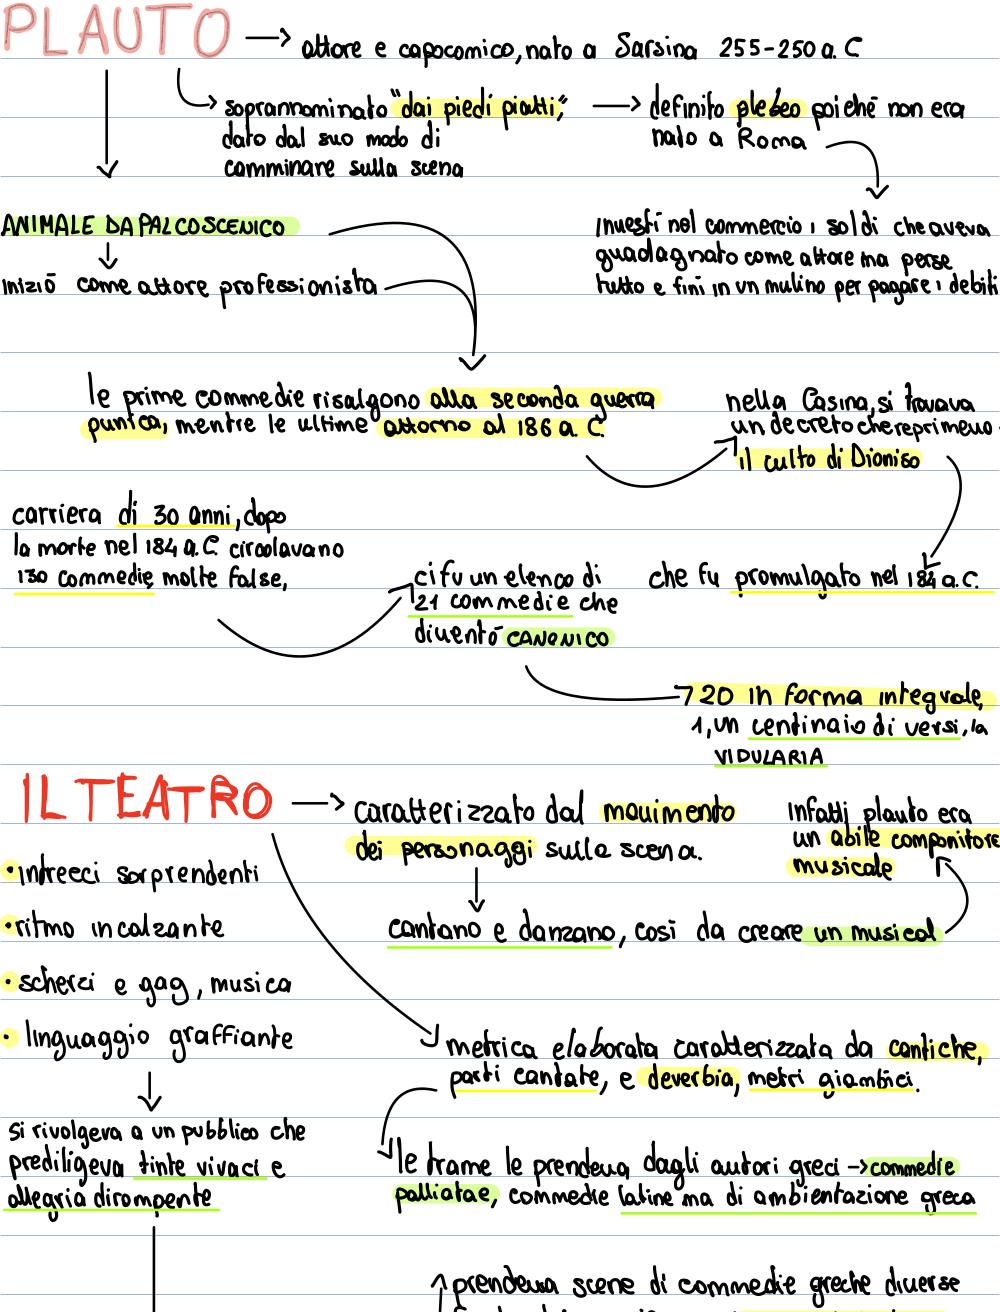 PLAUTO → attore e capocomico, nato a Sarsina 255-250 a.C
soprannominato "dai piedi piatti",
dato dal suo modo di
camminare sulla scena
definito plebeo poichē non era
nato a Roma
ANIMALE DA PALCOSCENICO
iniziō come attore professionista
Investi nel commercio i soldi che aveva
guadagnato come attore ma perse
tutto e finì in un mulino per pagare i debiti
le prime commedie risalgono alla seconda guerra
punica, mentre le ultime attorno al 186 a.C.
nella Casina, si trovava
un decreto che reprimeva
il culto di Dioniso
che fu promulgato nel 184 a.C.
carriera di 30 anni, dopo
la morte nel 184 a.C. circolavano
130 commedie molte false,
ci fu un elenco di
21 commedie che
diventō CANONICO
20 in forma integrale,
1, un centinaio di versi, la
VIDULARIA
IL TEATRO → caratterizzato dal movimento
dei personaggi sulla scena.
cantano e danzano, così da creare un musical
Infatti plauto era
un abile componitore
musicale
• intrecci sorprendenti
• ritmo incalzante
• scherzi e gag, musica
• linguaggio graffiante
si rivolgeva a un pubblico che
prediligeva tinte vivaci e
allegria dirompente
metrica elaborata caratterizzata da cantiche,
parti cantate, e deverbia, metri giambici.
le trame le prendeva dagli autori greci → commedie
palliatae, commedie latine ma di ambientazione greca
prendeva scene di commedie greche diverse